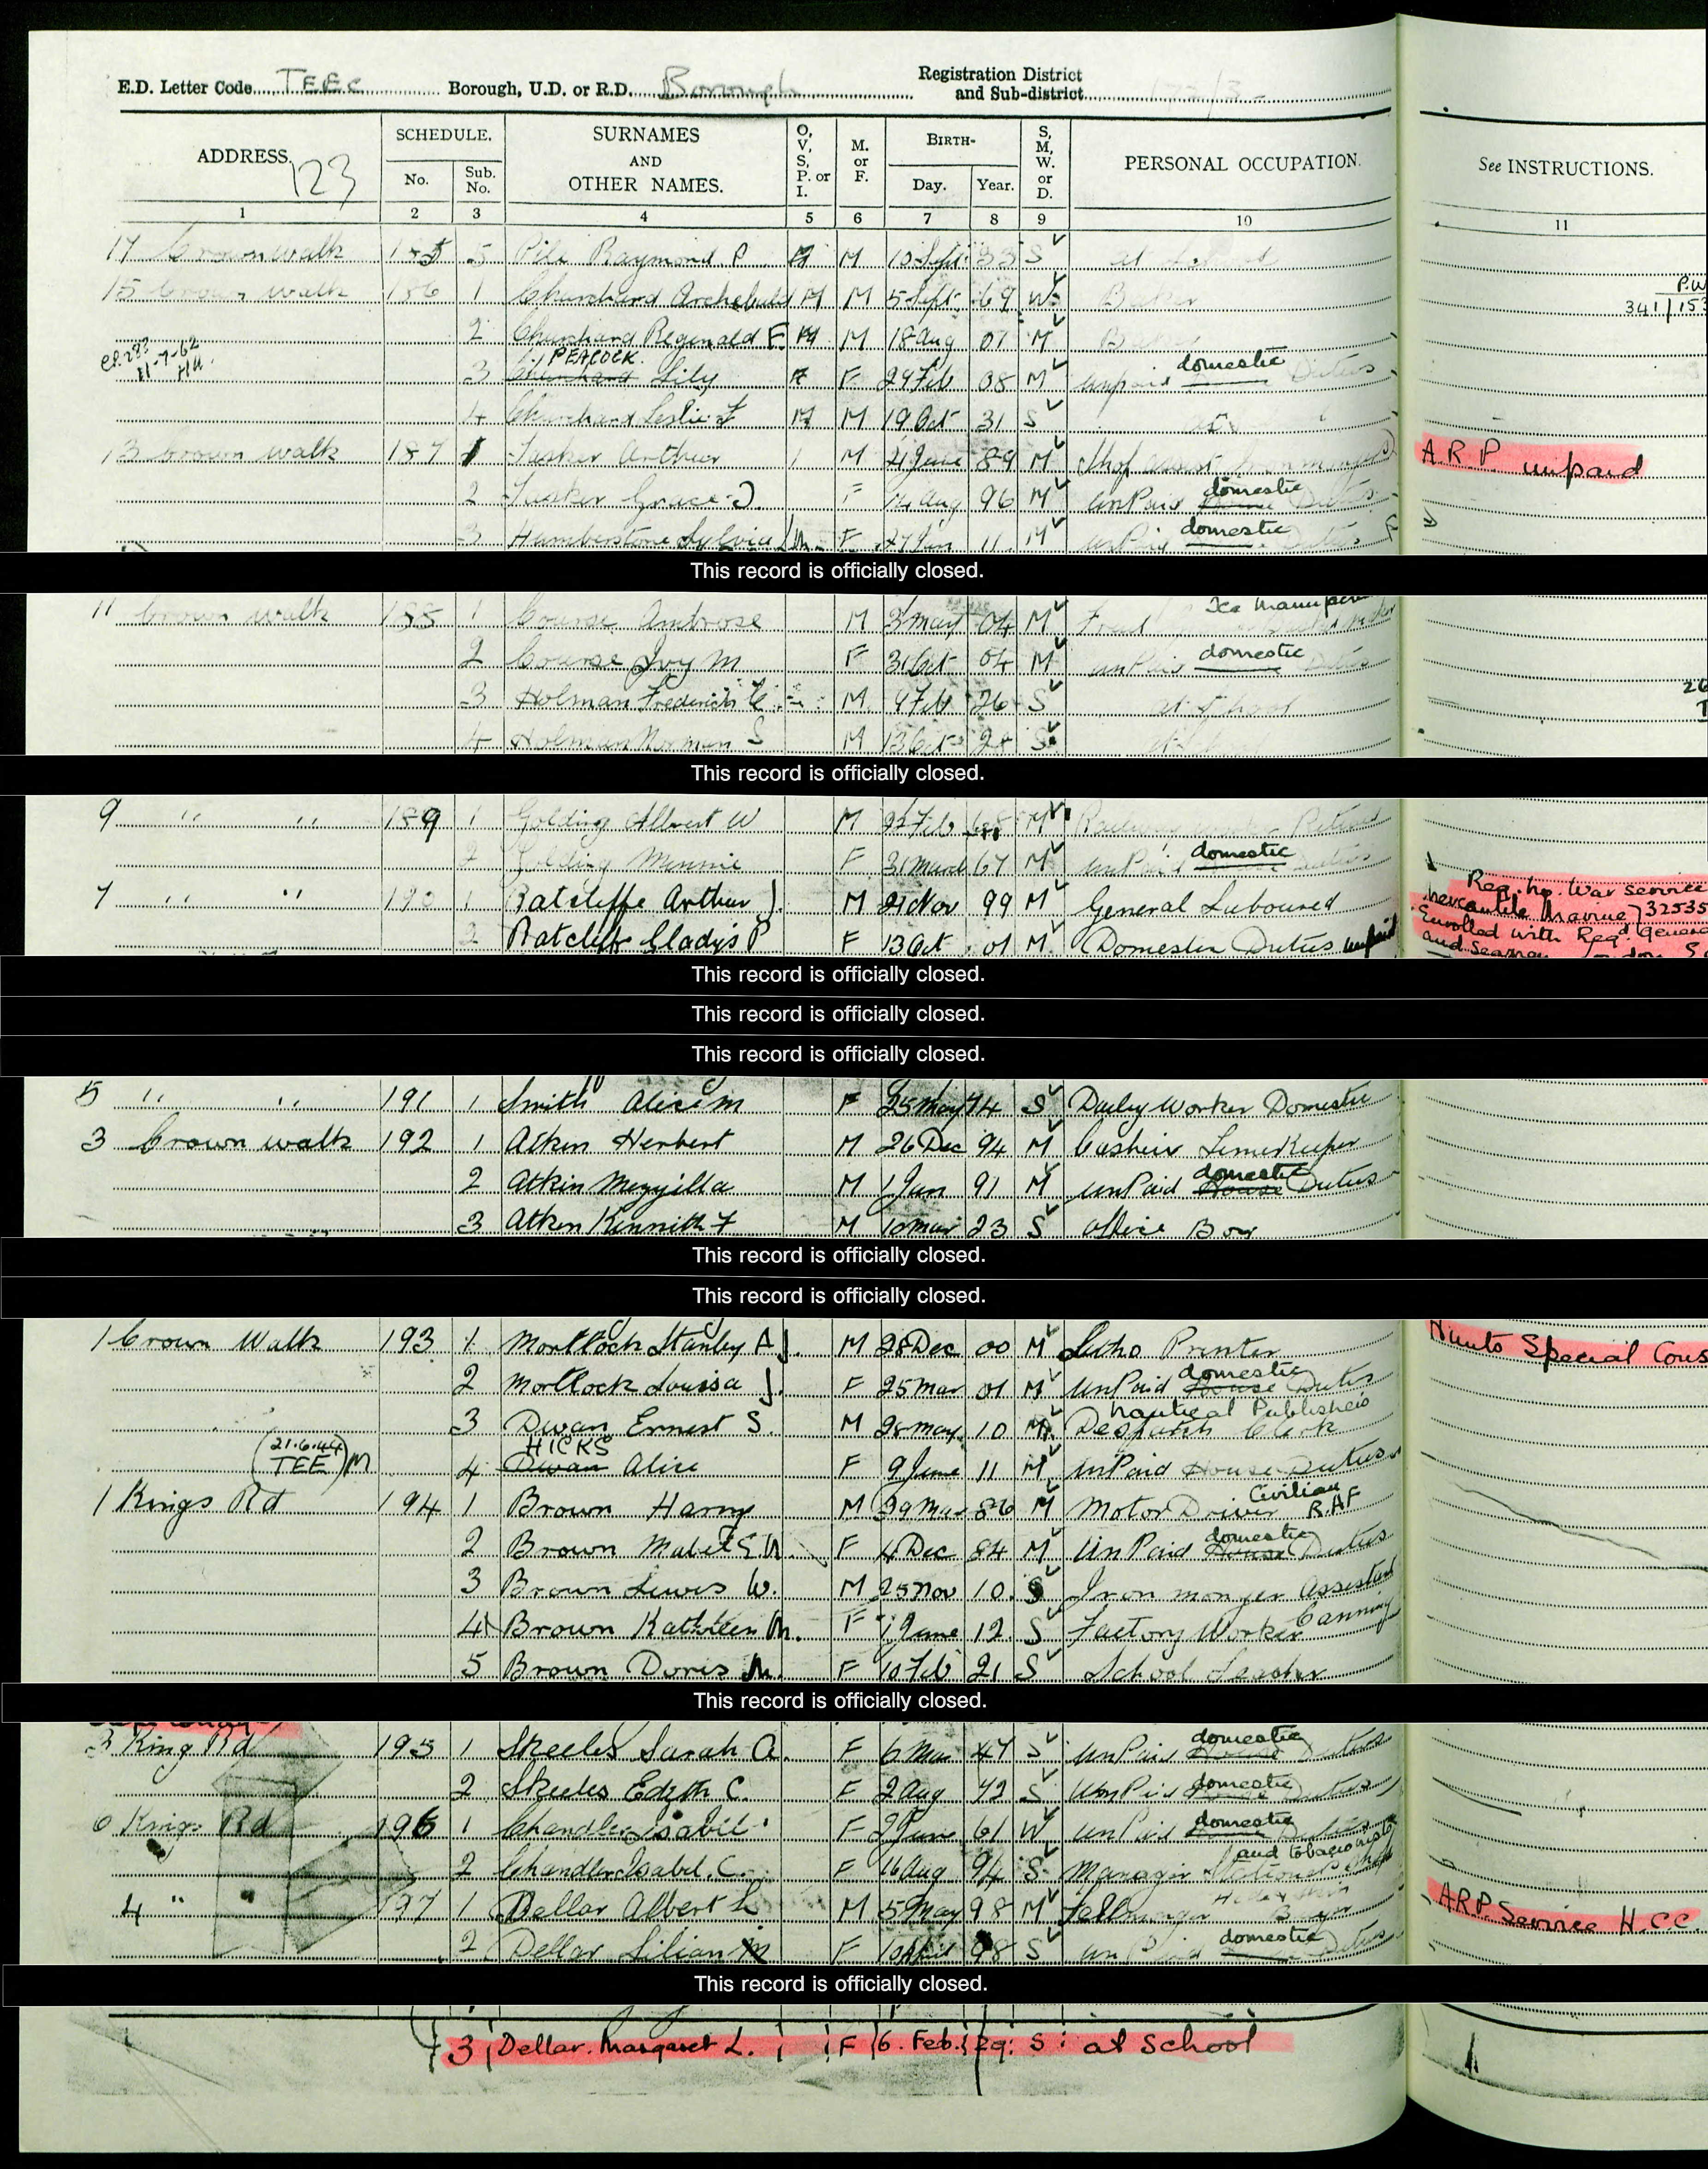 E.D. Letter Code TEEC Borough, U.D. or R.D. Borough Registration District and Sub-district 173/3
ADDRESS. SCHEDULE. SURNAMES AND OTHER NAMES. O, V, S, P. or I. M. or F. BIRTH- S, M, W. or D. PERSONAL OCCUPATION. See INSTRUCTIONS.
123 No. Sub. No. Day. Year.
1 2 3 4 5 6 7 8 9 10 11
17 Crown walk 185 5 Raymond P M 10 Sept 33 S at School
15 Crown walk 186 1 Churchard Archebald M M 5 Sept 69 W Baker
P.W
341/153
2 Churchard Reginald F. M M 18 Aug 07 M Baker
11-7-62
PEACOCK
3 Churchard Lily F 29 Feb 08 M unpaid domestic Duties
4 Churchard Leslie F M M 19 Oct 31 S
13 Crown walk 187 1 Tucker Arthur M 4 June 89 M Shop assist A R P. unpaid
2 Tucker Grace J F 14 Aug 96 M UnPaid domestic Duties
3 Humberstone Sylvia F 11 M UnPaid domestic Duties
This record is officially closed.
11 Crown walk 188 1 Course Ambrose M 3 May 04 M
2 Course Ivy M F 3 Oct 04 M UnPaid domestic Duties
3 Holman Frederick M 9 Feb 26 S at School
4 Holman Norman S M 13 Oct S at School
This record is officially closed.
9 " " 189 1 Golding Albert W M Feb 68 M Railway Worker Retired
2 Golding Minnie F 31 March 67 M UnPaid domestic Duties
7 " " 190 1 Ratcliffe Arthur J. M 21 Nov 99 M General Laboured Reg. no. War service
mercantile Marine 32535
2 Ratcliffe Gladys P F 13 Oct 01 M Domestic Duties unpaid Enrolled with Reg. General
and Seamen
This record is officially closed.
This record is officially closed.
This record is officially closed.
5 " " 191 1 Smith Alice M F 25 May 74 S Dailey Worker Domestic
3 Crown walk 192 1 Atkin Herbert M 26 Dec 94 M Cashier
2 Atkin Mezzilla M 1 Jan 91 M UnPaid House domestic Duties
3 Atkin Kennith F M 10 Mar 23 S Office Boy
This record is officially closed.
This record is officially closed.
1 Crown Walk 193 1 Mortlock Stanley A J. M 28 Dec 00 M Litho Printer Hunts Special Cons
2 Mortlock Louisa J. F 25 Mar 01 M UnPaid House domestic Duties
3 Dwan Ernest S. M 28 May 10 M Nautical Publishers Despatch Clerk
(21.6.44 TEE) M HICKS
4 Dwan Alice F 9 June 11 M UnPaid House Duties
1 Kings Rd 194 1 Brown Harry M 86 M Motor Driver Civilian R.AF
2 Brown Mabel E.M. F 4 Dec 84 M UnPaid House domestic Duties
3 Brown Lewis W. M 25 Nov 10 S Iron monger Assistant
4 Brown Kathleen M. F 1 June 12 S Factory Worker Canning
5 Brown Doris M. F 10 Feb 21 S School Teacher
This record is officially closed.
3 King Rd 195 1 Skeeles Sarah A. F 6 Mar 47 S UnPaid House domestic Duties
2 Skeeles Edith C. F 2 Aug 72 S UnPaid domestic Duties
6 Kings Rd 196 1 Chandler Isabel F 2 June 61 W UnPaid domestic Duties
2 Chandler Isabel. C. F 16 Aug 94 S Manager and tobacconist
4 " " 197 1 Dellar Albert L M 5 May 98 M Fellmonger Buyer ARP. Service H.C.C.
2 Dellar Lilian M F 10 April 98 S UnPaid domestic Duties
This record is officially closed.
3 Dellar. Margaret L. F 6. Feb. 29. S at School